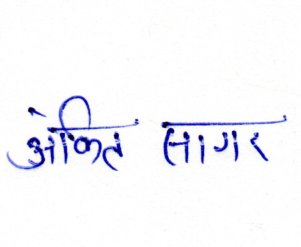 अंकित सागर